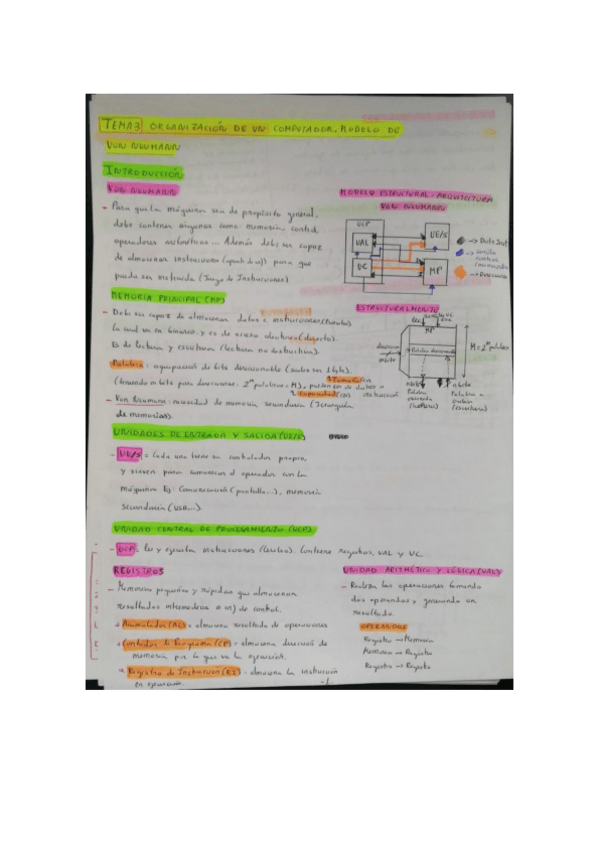 TEMA3 ORGANIZACIÓN DE UN COMPUTADOR. MODELO DE
VON NEUMANN
INTRODUCCIÓN
VON NEUMANN
- Para que la máquina sea de propósito general,
debe contener órganos como memoria, control,
operadores aritméticos... Además debe ser capaz
de almacenar instrucciones para que
pueda ser instruida (Juego de Instrucciones)
MODELO ESTRUCTURAL: ARQUITECTURA
VON NEUMANN
UCP
UAL
UC
UE/S
MP
→ Direcciones
MEMORIA PRINCIPAL (MP)
- Debe ser capaz de almacenar datos e instrucciones
la cual va en binario y es de acceso aleatorio (directo).
Es de lectura y escritura (lectura no destructiva).
Palabra: agrupación de bits direccionable (suele ser 1 byte).
- Von Neumann: necesidad de memoria secundaria (Jerarquía
de memorias).
ESTRUCTURALMENTE
MP
Palabra direccionable
n bits
Palabra
(lectura)
n bits
Palabra a
(escritura)
UNIDADES DE ENTRADA Y SALIDA (UE/S)
- UE/S = Cada una tiene su controlador propio,
y sirven para comunicar el operador con la
máquina Ej: Comunicación (pantalla...), memoria
secundaria (USB...).
UNIDAD CENTRAL DE PROCESAMIENTO (UCP)
- UCP: lee y ejecuta instrucciones. Contiene registros, UAL y UC.
REGISTROS
- Memorias pequeñas y rápidas que almacenan
resultados intermedios o de control.
Acumulador (AC) = almacena resultado de operaciones
Contador de Programa (CP) = almacena dirección de
memoria por la que va la ejecución.
Registro de Instrucción (RI) = almacena la instrucción
en ejecución.
UNIDAD ARITMÉTICO Y LÓGICA (UAL)
- Realiza las operaciones tomando
dos operandos y generando un
resultado.
OPERACIONES
Registro → Memoria
Memoria → Registro
Registro → Registro
-1-